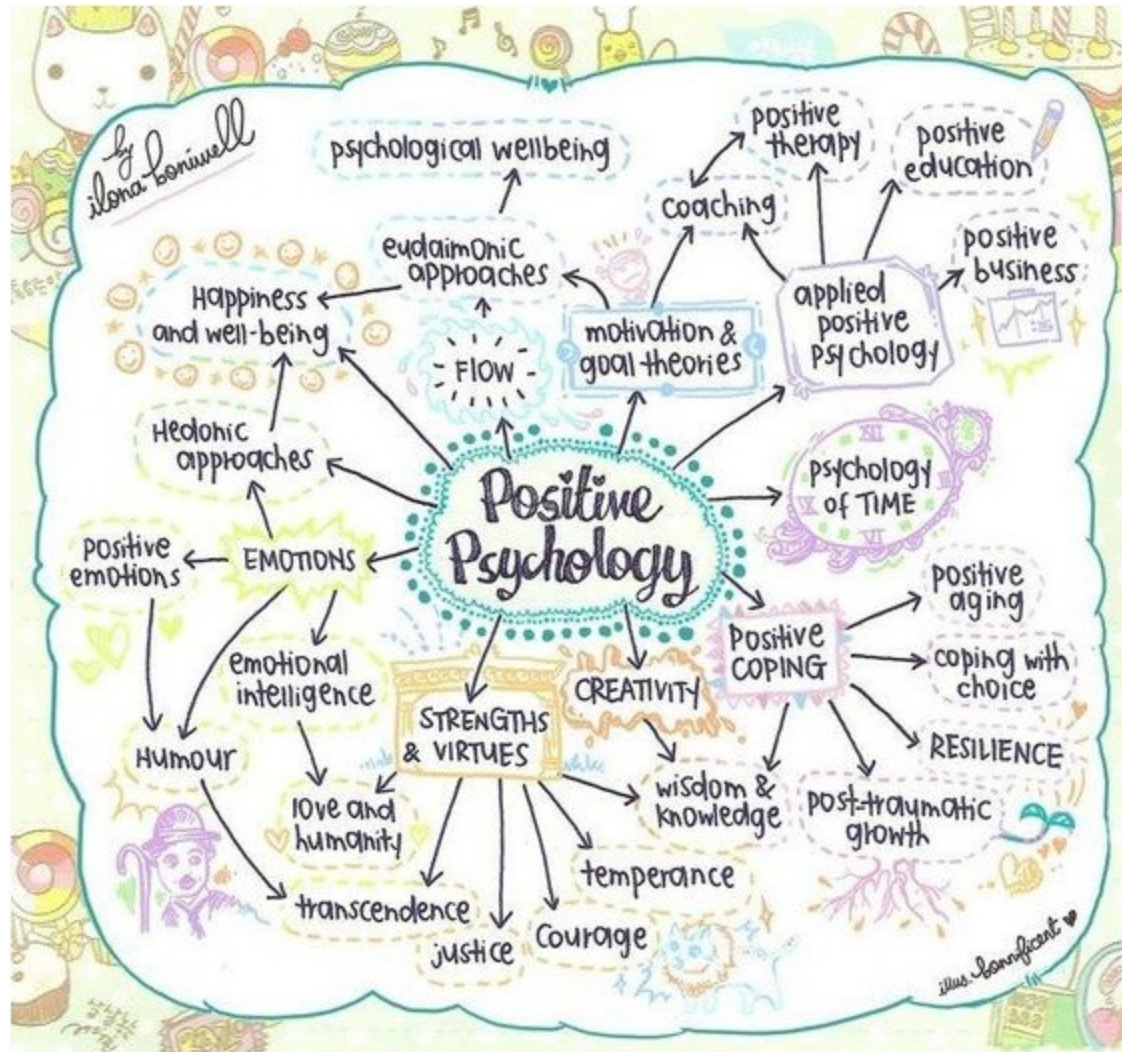 by
ilona boniwell
psychological wellbeing
positive
therapy
positive
education
coaching
eudaimonic
approaches
positive
business
Happiness
and well-being
FLOW
motivation &
goal theories
applied
positive
psychology
Hedonic
approaches
Positive
Psychology
psychology
of TIME
positive
emotions
EMOTIONS
positive
aging
emotional
intelligence
POSITIVE
COPING
coping with
choice
STRENGTHS
& VIRTUES
CREATIVITY
RESILIENCE
Humour
love and
humanity
wisdom &
knowledge
post-traumatic
growth
temperance
transcendence
justice
Courage
illus. bonnficent